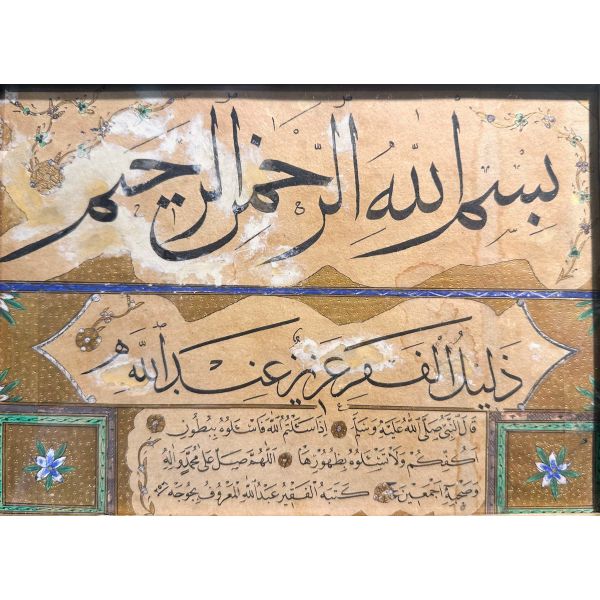 بسم الله الرحمن الرحيم
ذليل الفقر عزيز عند الله
قال النبي صلى الله عليه وسلم اذا سئلتم الله فاسئلوه ببطون
اكفكم ولا تسئلوه بظهورها اللهم صل على محمد واله
وصحبه اجمعين كتبه الفقير عبد الله المعروف